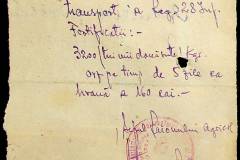 transport, a Reg. 228 Inf.
Fortificatii:-
3200/trei mii douăsute/ Kgr.
orz pe timp de 5 zile ca
hrană a 160 cai.-
Șeful Raionului Agricol